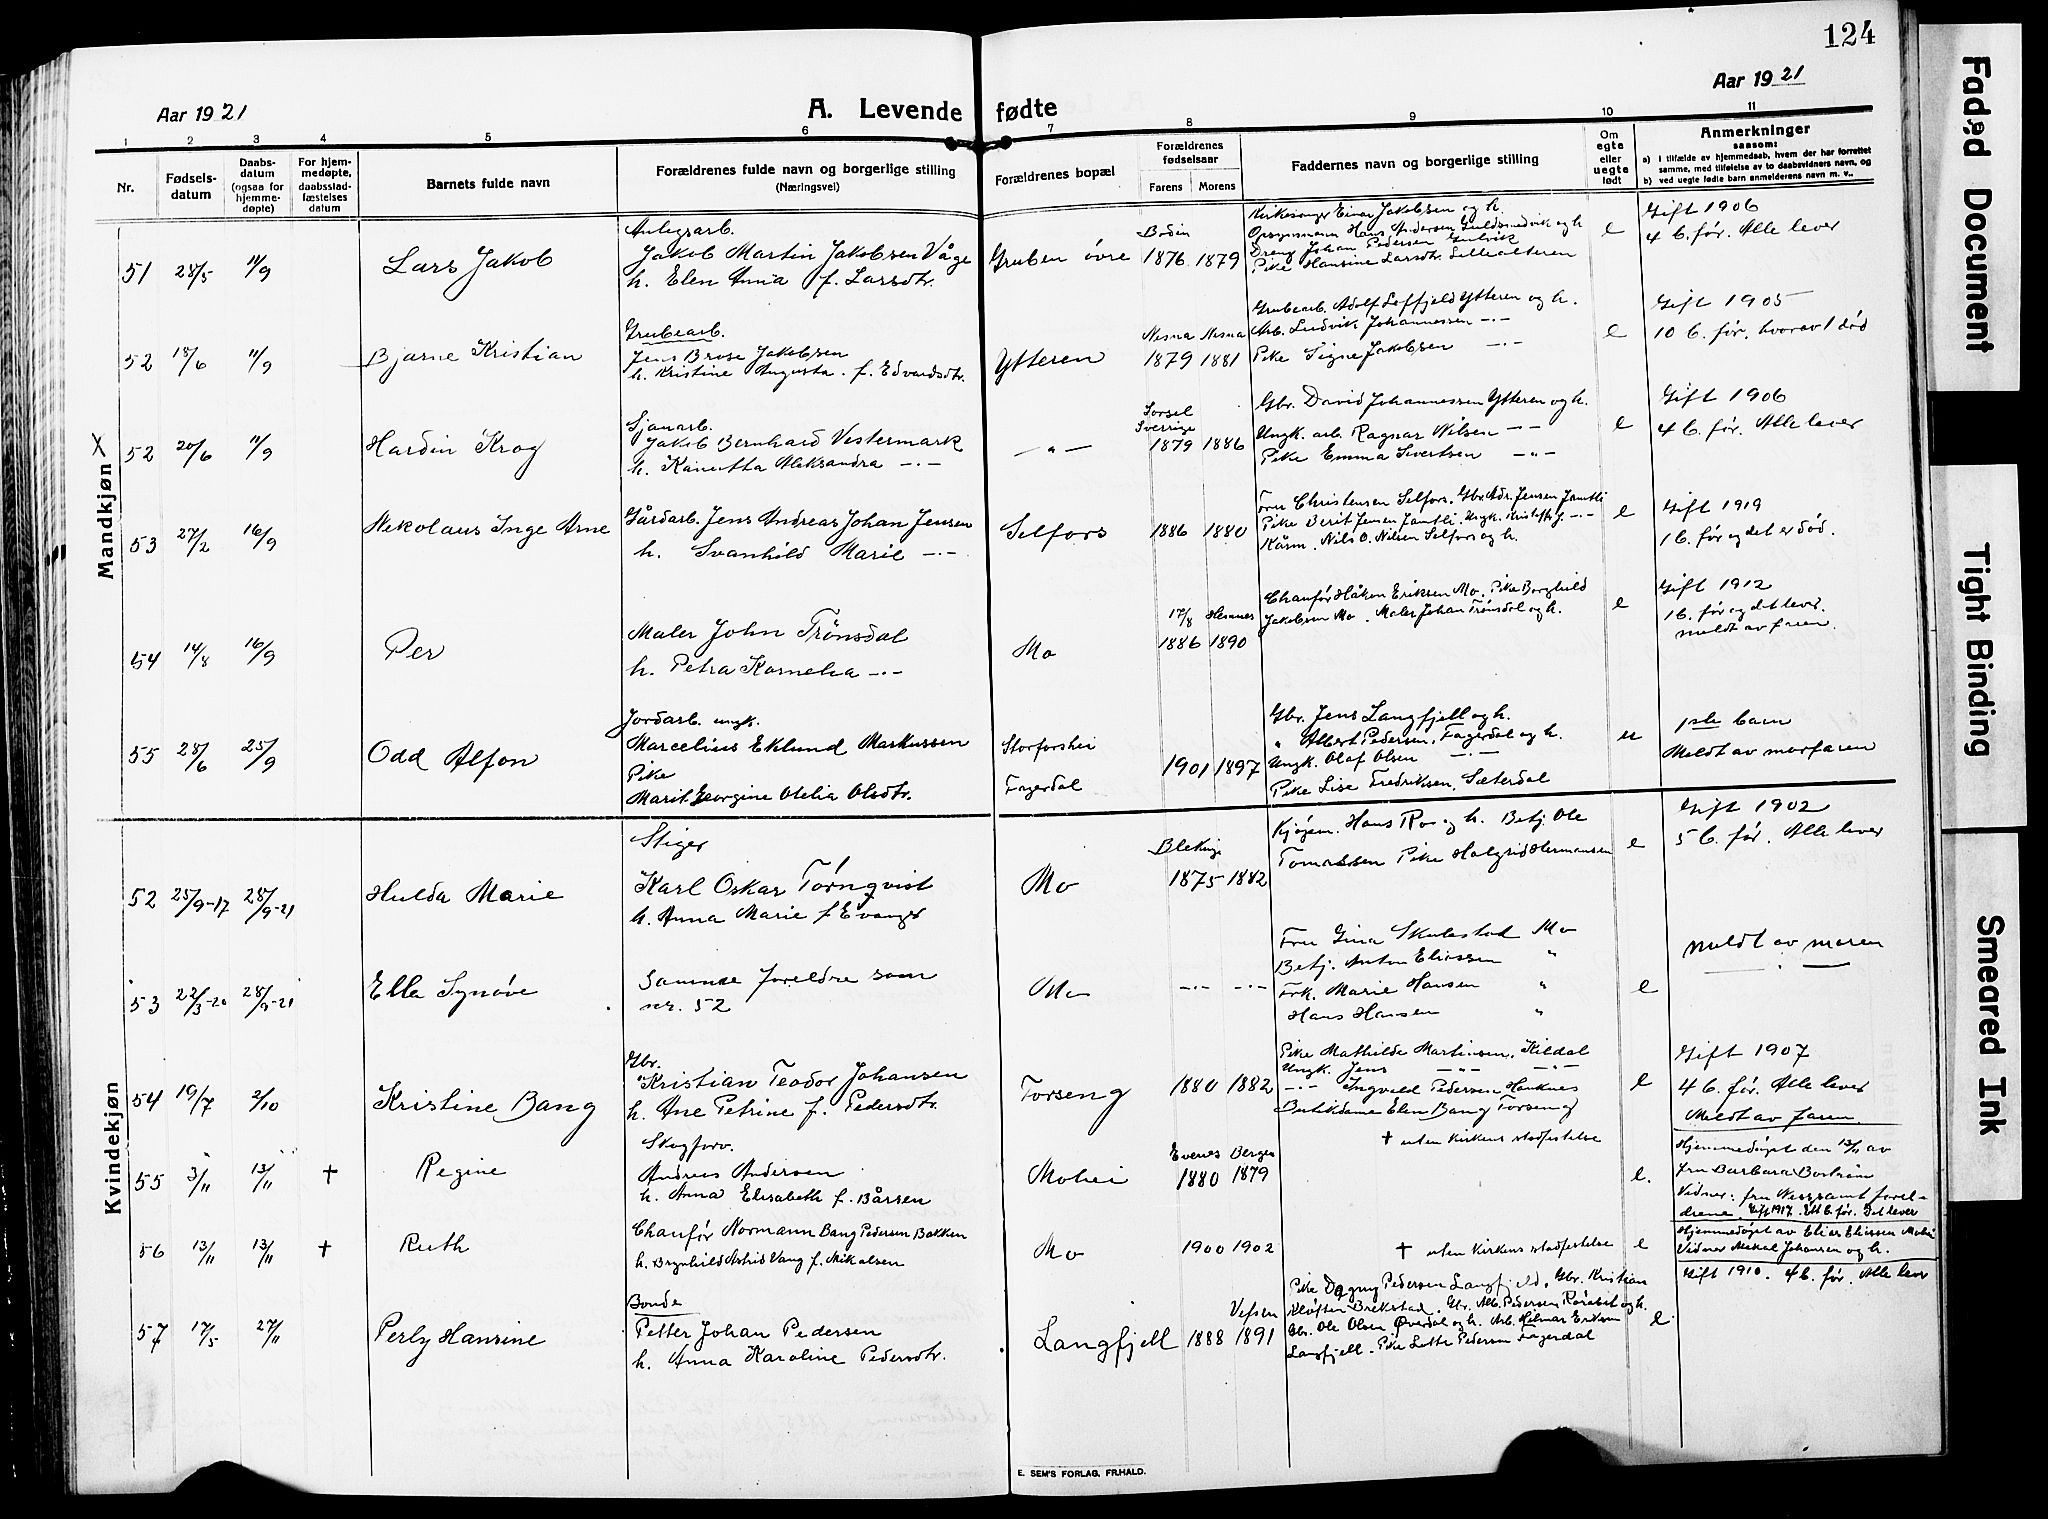 124
Aar 1921
A. Levende fødte
Aar 1921
1 2 3 4 5 6 7 8 9 10 11
Nr.
Fødsels-
datum
Daabs-
datum
(ogsaa for
hjemme-
døpte)
For hjem-
medøpte,
daabsstad-
fæstelses
datum
Barnets fulde navn
Forældrenes fulde navn og borgerlige stilling
(Næringsvei)
Forældrenes bopæl
Forældrenes
fødselsaar
Farens Morens
Faddernes navn og borgerlige stilling
Om
egte
eller
uegte
født
Anmerkninger
saasom:
a) i tilfælde av hjemmedaab, hvem der har forrettet
samme, med tilføielse av to daabsvidners navn, og
b) ved uegte fødte barn anmelderens navn m. v..
Mandkjøn
51 28/5 11/9 Lars Jakob
Anlegsarb.
Jakob Martin Jakobsen Våge
h. Elen Anna f. Larsdtr.
Gruben övre
Bodin
1876 1879
Kirkesanger Einar Jakobsen og h.
Opsynsmann Hans Andersen Guldsmedvik og h
Dreng Johan Pedersen Gulvik
Pike Hansine Larsdtr. Lillealteren
e
Gift 1906
4 b. før. Alle lever
52 18/6 11/9 Bjarne Kristian
Grubearb.
Jens Brose Jakobsen
h. Kristine Augusta. f. Edvardsdtr.
Ytteren
Nesna Nesna
1879 1881
Grubearb. Adolf Leffjeld Ytteren og h.
Arb. Ludvik Johannessen -"-
Pike Signe Jakobsen -"-
e
Gift 1905
10 b. før, hvorav 1 død
X
52 20/6 11/9 Hardin Krog
Sjauarb.
Jakob Bernhard Vestermark
h. Kanutta Aleksandra -"-
-"-
Sorsel
Sverrige
1879 1886
Gbr. David Johannessen Ytteren og h.
Ungk. arb. Ragnar Nilsen -"-
Pike Emma Sivertsen -"-
e
Gift 1906
4 b. før. Alle lever
53 27/2 16/9 Nekolaus Inge Arne
Gårdarb. Jens Andreas Johan Jensen
h. Svanhild Marie -"-
Selfors
1886 1880
Fru Christensen Selfors. Gbr. Adr. Jensen Jamtli
Pike Berit Jensen Jamtli. Ungk. Kristoff. J. -"-
Kårm. Nils O. Nilsen Selfors og h.
e
Gift 1919
1 b. før og det er død.
54 14/8 16/9 Per
Maler John Trönsdal
h. Petra Kornelia -"-
Mo
17/8 Hemnes
1886 1890
Chauför Håkon Eriksen Mo. Pike Borghild
Jakobsen Mo. Maler Johan Trönsdal og h.
e
Gift 1912
1 b. før og det lever.
Meldt av faren.
55 28/6 25/9 Odd Alfon
Jordarb. ungk.
Marcelius Eklund Markussen
Pike
Marit Georgine Otelia Olsdtr.
Storforshei
Fagerdal
1901 1897
Gbr. Jens Langfjell og h.
" Albert Pedersen, Fagerdal og h.
Ungk. Olaf Olsen -"-
Pike Lise Fredriksen, Sæterdal
u
1ste barn
Meldt av morfaren
Kvindekjøn
52 25/9-17 28/9-21 Hulda Marie
Stiger
Karl Oskar Törnqvist
h. Anna Marie f. Evanger
Mo
Blekinge
1875 1882
Kjøpm. Hans Ros og h. Betj. Ole
Tomassen Pike Halgrid Hermansen
e
Gift 1902
5 b. før. Alle lever
53 22/3-20 28/9-21 Ella Synöve
Samme foreldre som
nr. 52
Mo
-"- -"-
Fru Gina Skulestad Mo
Betj. Anton Eliassen "
Frk. Marie Hansen "
Hans Hansen "
e
Meldt av moren
54 19/7 2/10 Kristine Bang
Gbr.
Kristian Teodor Johansen
h. Ane Petrine f. Pedersdtr.
Forseng
1880 1882
Pike Mathilde Martinsen, Kildal
Ungk. Jens -"- -"-
-"- Ingvald Pedersen Hauknes
Butikdame Elen Bang Forseng
e
Gift 1907
4 b. før. Alle lever
Meldt av faren
55 3/11 13/11 † Regine
Skogforv.
Andreas Andersen
h. Anna Elisabeth f. Bårsen
Mohei
Evenes Bergen
1880 1879
† uten kirkens stadfestelse
e.
Hjemmedøpt den 13/11 av
fru Barbara Boström
Vidner: fru Wessamt forel-
drene. Gift 1917. Ett b. før. Det lever
56 13/11 13/11 † Ruth
Chauför Normann Bang Pedersen Bakken
h. Brynhild Astrid Vang f. Mikalsen
Mo
1900 1902
† uten kirkens stadfestelse
e
Hjemmedøpt av Elias Eliassen Mohei
Vidner Mekal Johansen og h.
57 17/5 27/11 Perly Hansine
Bonde
Petter Johan Pedersen
h. Anna Karoline Pedersdtr.
Langfjell
Vefsen
1888 1891
Pike Dagny Pedersen Langfjeld, Gbr. Kristian
Kløften Brekstad. Gbr. Alb. Pedersen og h.
Gbr. Ole Olsen Øverdal og h. Arb. Hilmar Eriksen
Langfjell. Pike Lotte Pedersen Fagerdal
e
Gift 1910. 4 b. før. Alle lever
E. SEM'S FORLAG, FR.HALD.
Faded Document
Tight Binding
Smeared Ink